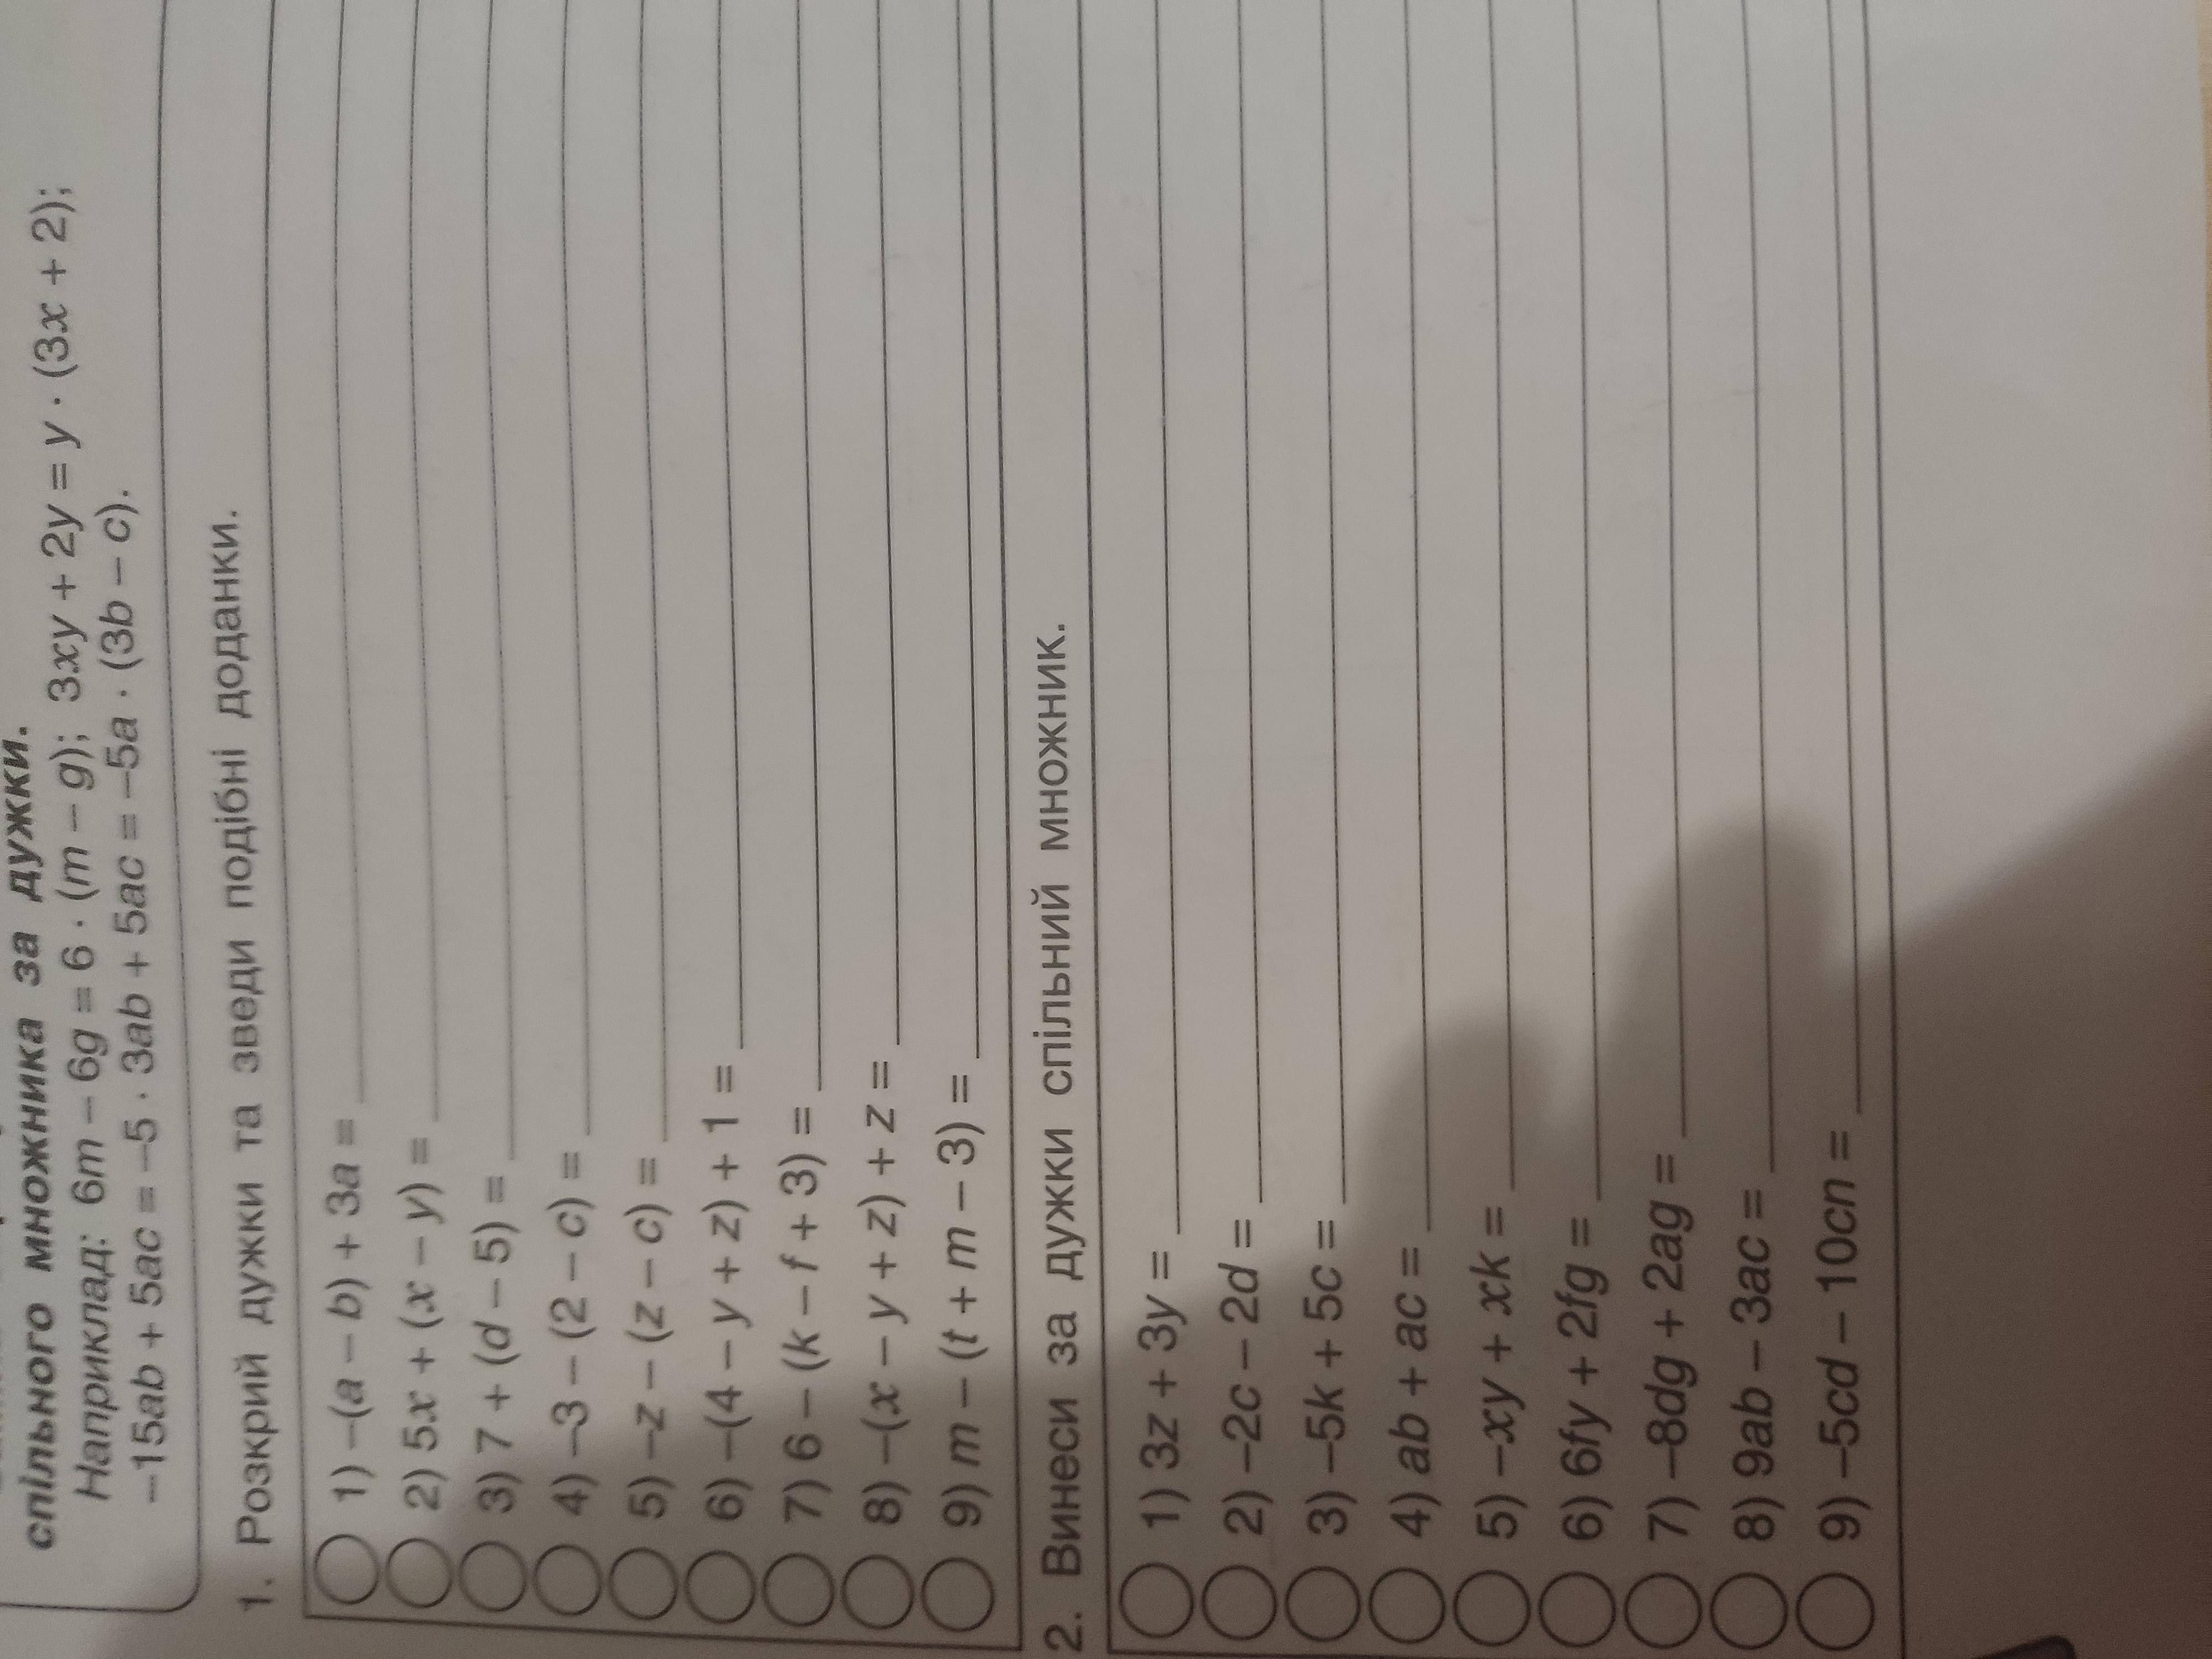 спільного множника за дужки.
Наприклад: 6m – 6g = 6 · (m – g); 3xy + 2y = y · (3x + 2);
–15ab + 5ac = –5 · 3ab + 5ac = –5a · (3b – c).
1. Розкрий дужки та зведи подібні доданки.
1) –(a – b) + 3a =
2) 5x + (x – y) =
3) 7 + (d – 5) =
4) –3 – (2 – c) =
5) –z – (z – c) =
6) –(4 – y + z) + 1 =
7) 6 – (k – f + 3) =
8) –(x – y + z) + z =
9) m – (t + m – 3) =
2. Винеси за дужки спільний множник.
1) 3z + 3y =
2) –2c – 2d =
3) –5k + 5c =
4) ab + ac =
5) –xy + xk =
6) 6fy + 2fg =
7) –8dg + 2ag =
8) 9ab – 3ac =
9) –5cd – 10cn =